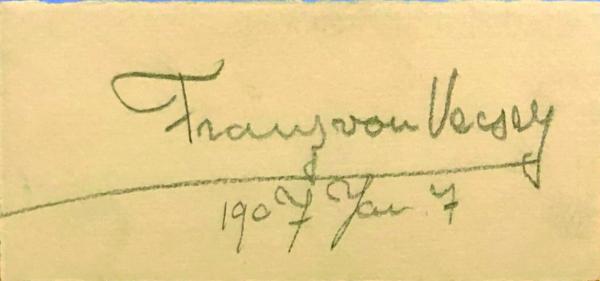 Franz von Vecsey
1907 Jan. 7